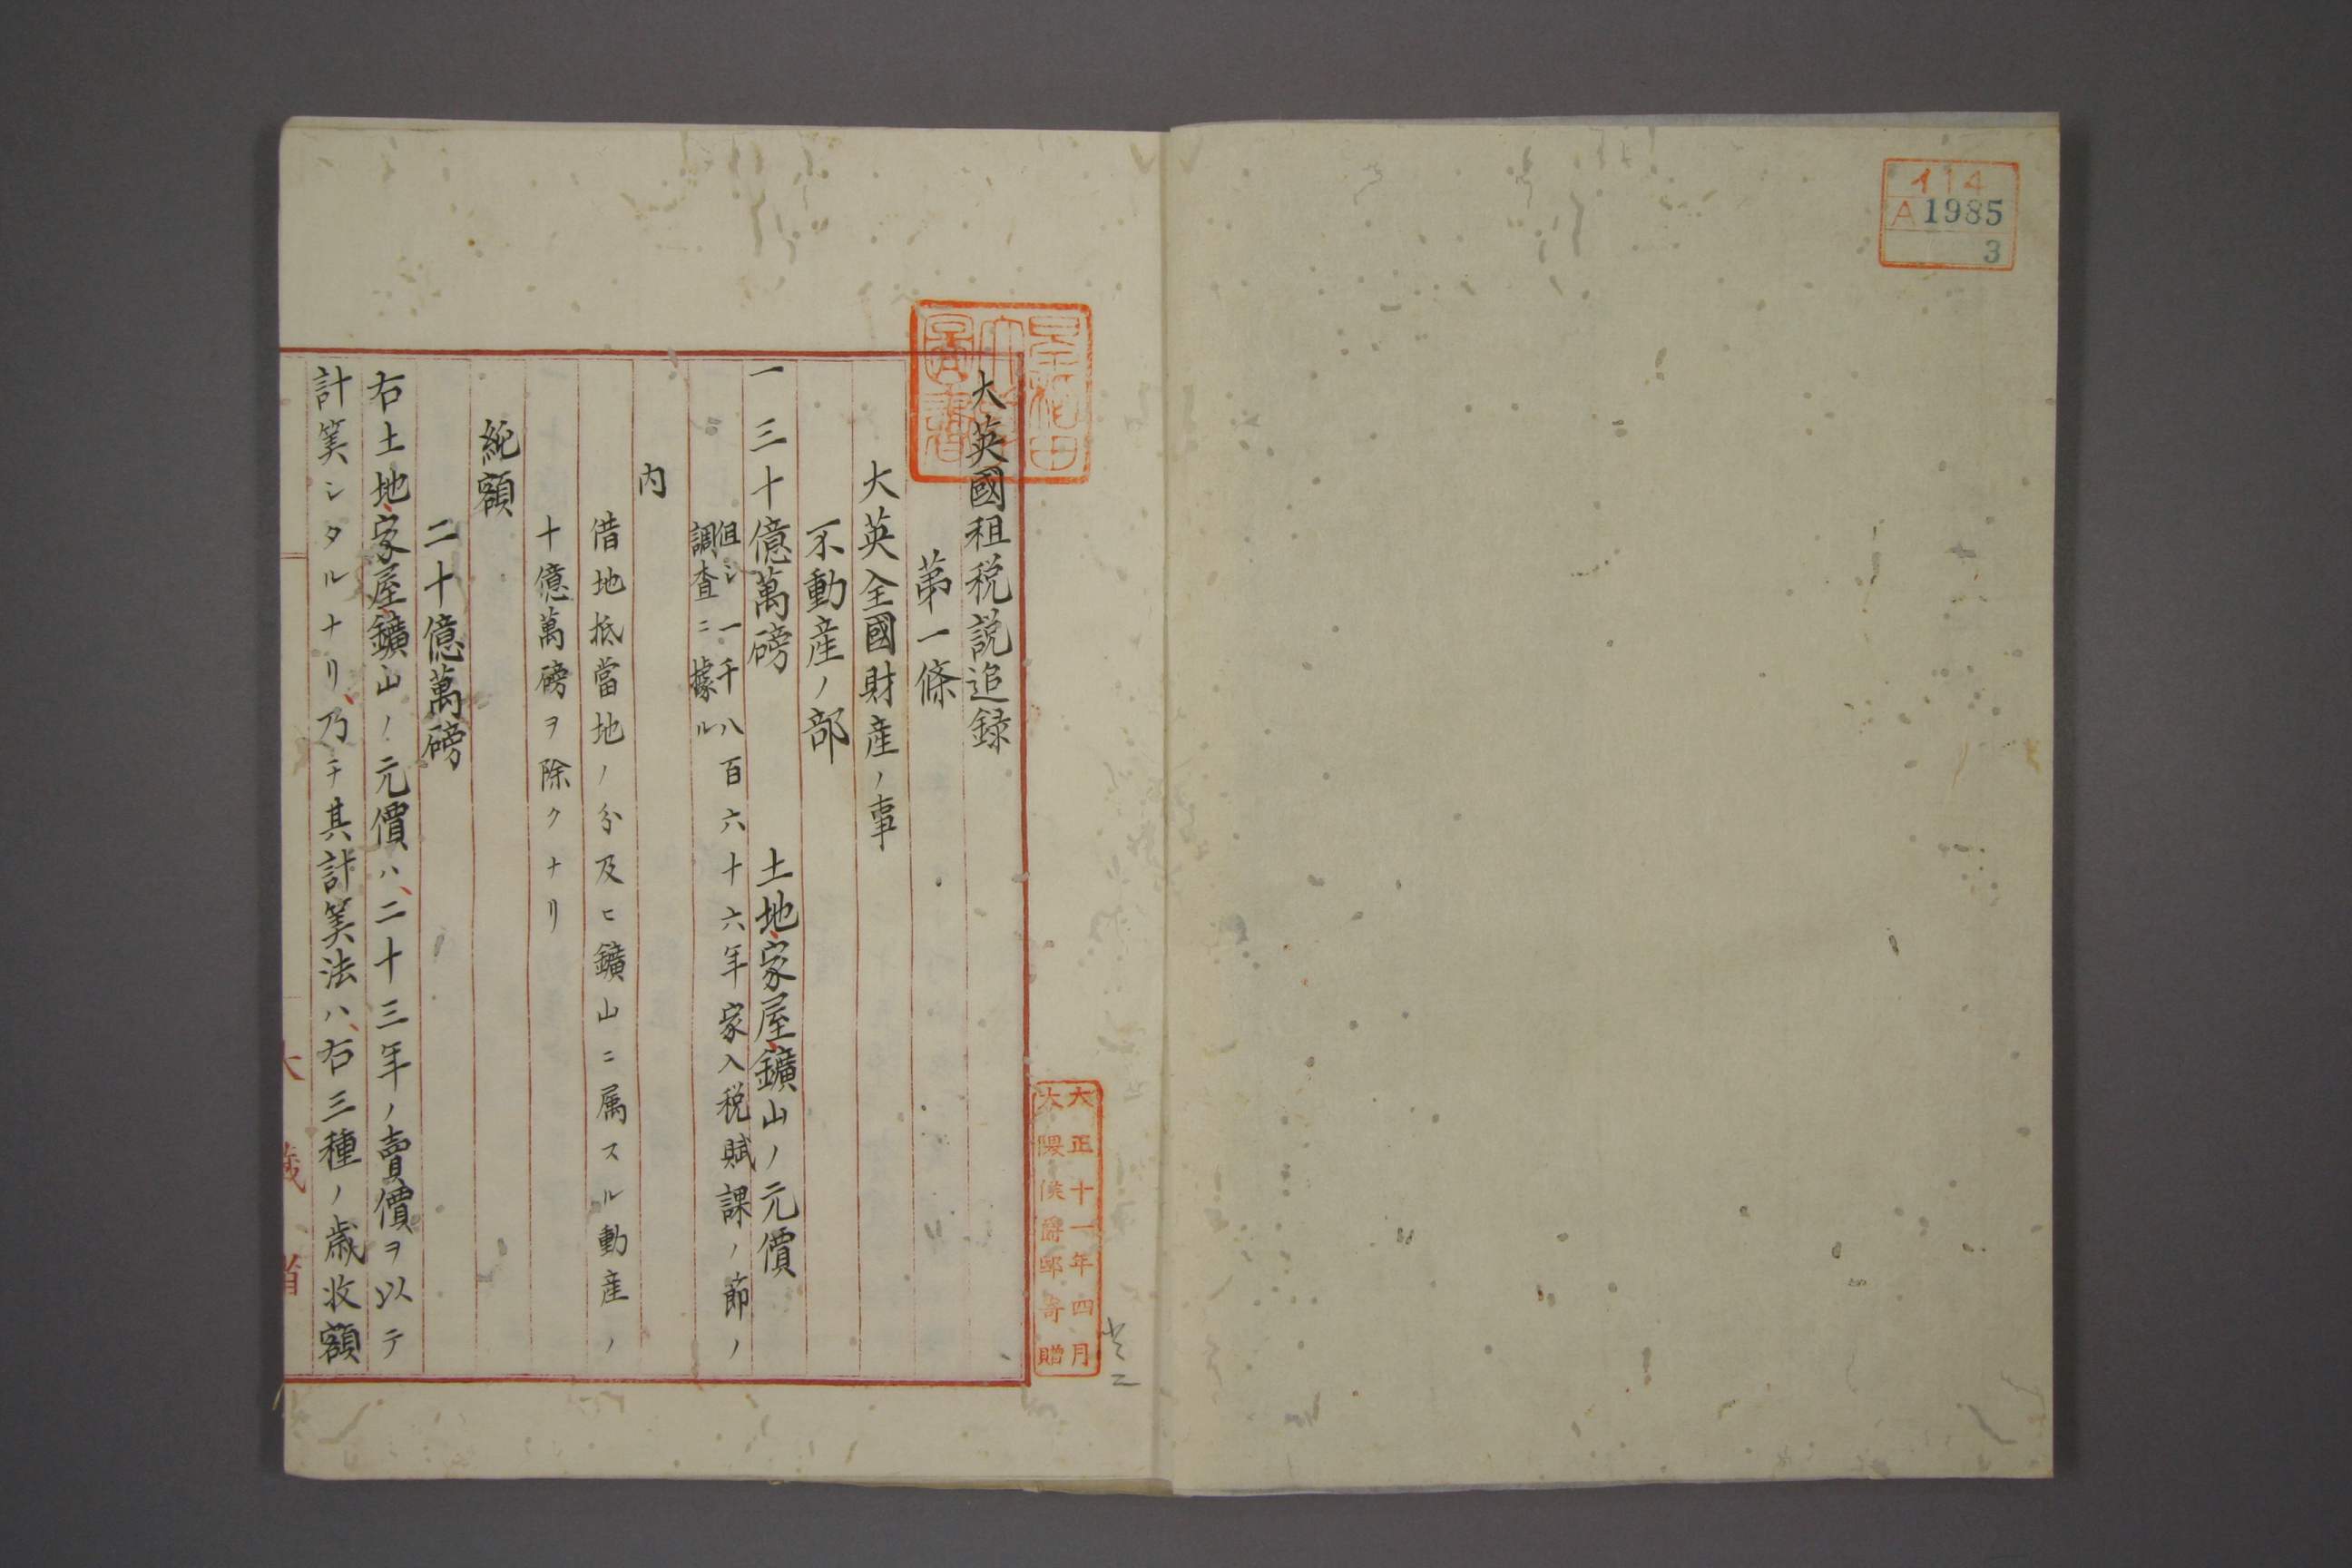 イ14
A1985
3
早稲田
大學
圖書
大正十一年四月
大隈侯爵郵寄贈
大英國租税説追録
第一條
大英全國財産ノ事
不動産ノ部
一三十億萬磅　土地、家屋、鑛山ノ元價
但シ一千八百六十六年家入税賦課ノ節ノ
調査ニ據ル
内
借地抵當地ノ分及ヒ鑛山ニ属スル動産ノ
十億萬磅ヲ除クナリ
純額
二十億萬磅
右土地、家屋、鑛山ノ元價ハ、二十三年ノ賣價ヲ以テ
計筭シタルナリ、乃チ其計筭法ハ、右三種ノ歳收額
大蔵省